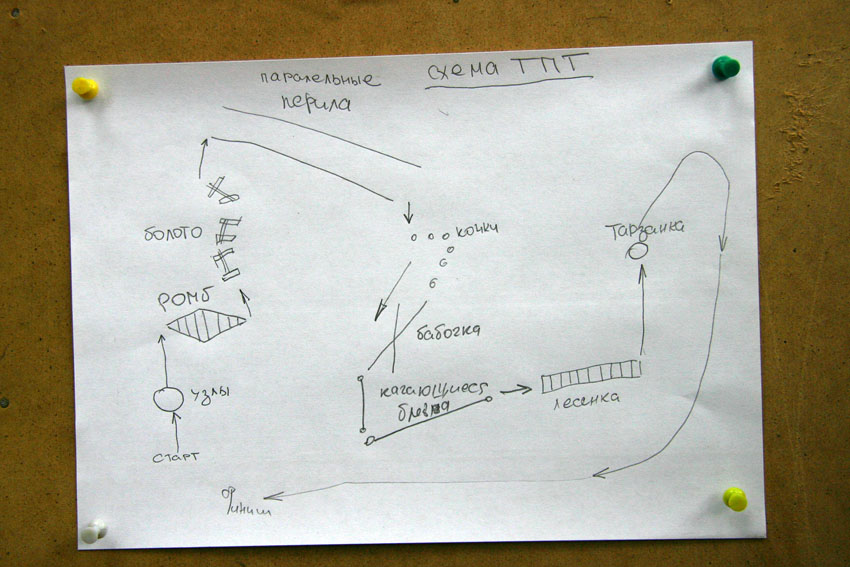 схема ТПТ
паралельные
перила
болото
кочки
Тарзанка
РОМБ
бабочка
узлы
качающиеся
лесенка
старт
Финиш